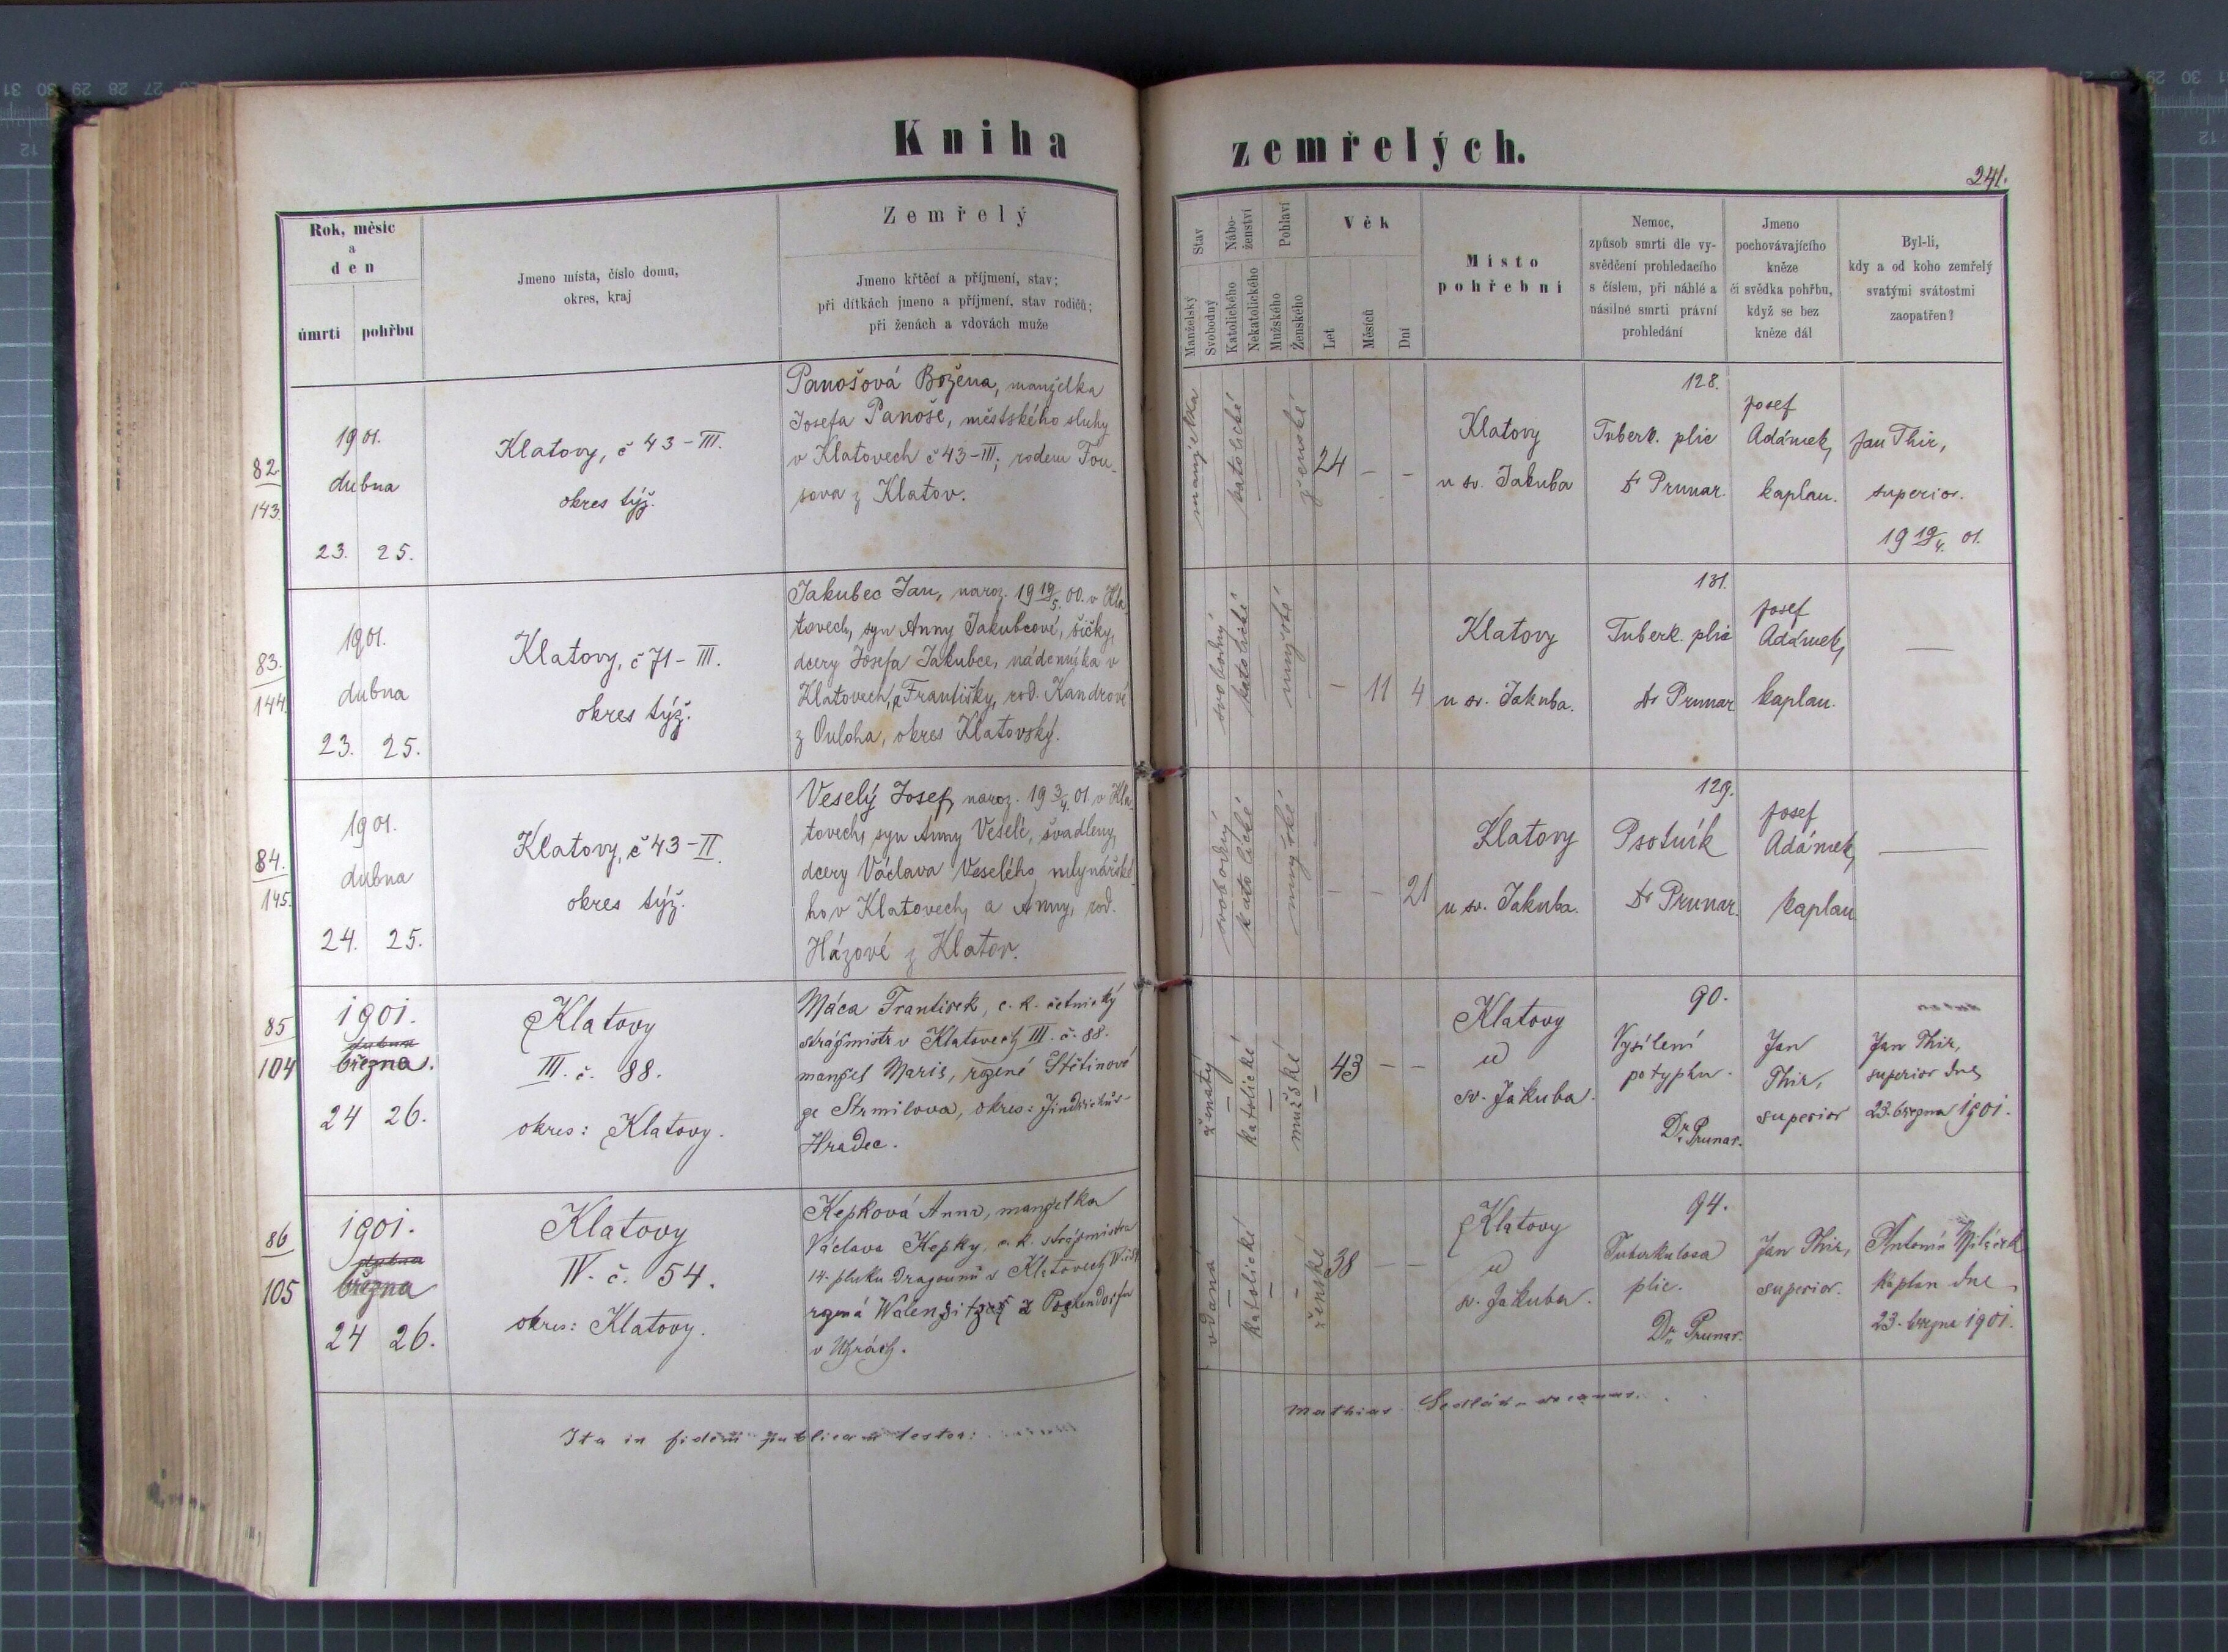 Kniha zemřelých.
241.
Rok, měsíc
a
den
úmrtí pohřbu
Jmeno místa, číslo domu,
okres, kraj
Zemřelý
Jmeno křtěcí a příjmení, stav;
při dítkách jmeno a příjmení, stav rodičů;
při ženách a vdovách muže
Stav
Manželský
Svobodný
Nábo-
ženství
Katolického
Nekatolického
Pohlaví
Mužského
Ženského
Věk
Let
Měsíců
Dní
Místo
pohřební
Nemoc,
způsob smrti dle vy-
svědčení prohledacího
s číslem, při náhlé a
násilné smrti právní
prohledání
Jmeno
pochovávajícího
kněze
či svědka pohřbu,
když se bez
kněze dál
Byl-li,
kdy a od koho zemřelý
svatými svátostmi
zaopatřen?
82.
143.
1901.
dubna
23. 25.
Klatovy, č 43-III.
okres týž.
Panošová Božena, manželka
Josefa Panoše, městského sluhy
v Klatovech č 43-III; rodem Fou-
sova z Klatov.
manželka
katolické
ženské
24 - -
Klatovy
u sv. Jakuba
128.
Tuberk. plic
Dr Prunar.
Josef
Adámek,
kaplan.
Jan Thir,
superior.
19 19/4. 01.
83.
144.
1901.
dubna
23. 25.
Klatovy, č 71-III.
okres týž.
Jakubec Jan, naroz. 19 19/5. 00. v Kla-
tovech, syn Anny Jakubcové, šičky,
dcery Josefa Jakubce, nádeníka v
Klatovech, a Františky, rod. Kandrové
z Ouloha, okres Klatovský.
svobodný
katolické
mužské
- 11 4
Klatovy
u sv. Jakuba.
131.
Tuberk. plic
Dr Prunar
Josef
Adámek,
kaplan.
—
84.
145.
1901.
dubna
24. 25.
Klatovy, č 43-II.
okres týž.
Veselý Josef, naroz. 19 3/4. 01. v Kla-
tovech, syn Anny Veselé, švadleny,
dcery Václava Veselého, mlynářské-
ho v Klatovech, a Anny, rod.
Házové z Klatov.
svobodný
katolické
mužské
- - 21
Klatovy
u sv. Jakuba.
129.
Psotník
Dr Prunar.
Josef
Adámek,
kaplan
—
85
104
1901.
dubna
března.
24 26.
Klatovy
III. č. 88.
okres: Klatovy.
Máca František, c. k. četnický
strážmistr v Klatovech III. č. 88.
manžel Marie, rozené Štětinové
ze Strmilova, okres: Jindřichův-
Hradec.
ženatý
katolické
mužské
43 - -
Klatovy
u
sv. Jakuba.
90.
Vysílení
po typhu.
Dr. Prunar.
Jan
Thir,
superior
Jan Thir,
superior dne
23. března 1901.
86
105
1901.
dubna
března
24 26.
Klatovy
IV. č. 54.
okres: Klatovy.
Kepková Anna, manželka
Václava Kepky, c. k. strážmistra
14. pluku dragounů v Klatovech IV. č. 54
rozená
v Uhrách.
vdaná
katolické
ženské
38 - -
Klatovy
u
sv. Jakuba.
94.
Tuberkulosa
plic.
Dr. Prunar.
Jan Thir,
superior.
Antonín
kaplan dne
23. března 1901.
Ita in fidem publicam testor:
Mathias Sedlák decanus.